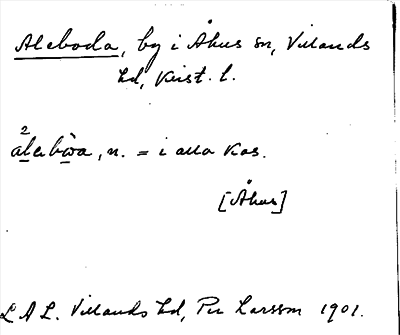 Aleboda, by i Åhus sn, Villands
hd, Krist. l.
2
alebωa, n. = i alla kas.
[Åhus]
L A L. Villands hd, Per Larsson 1901.